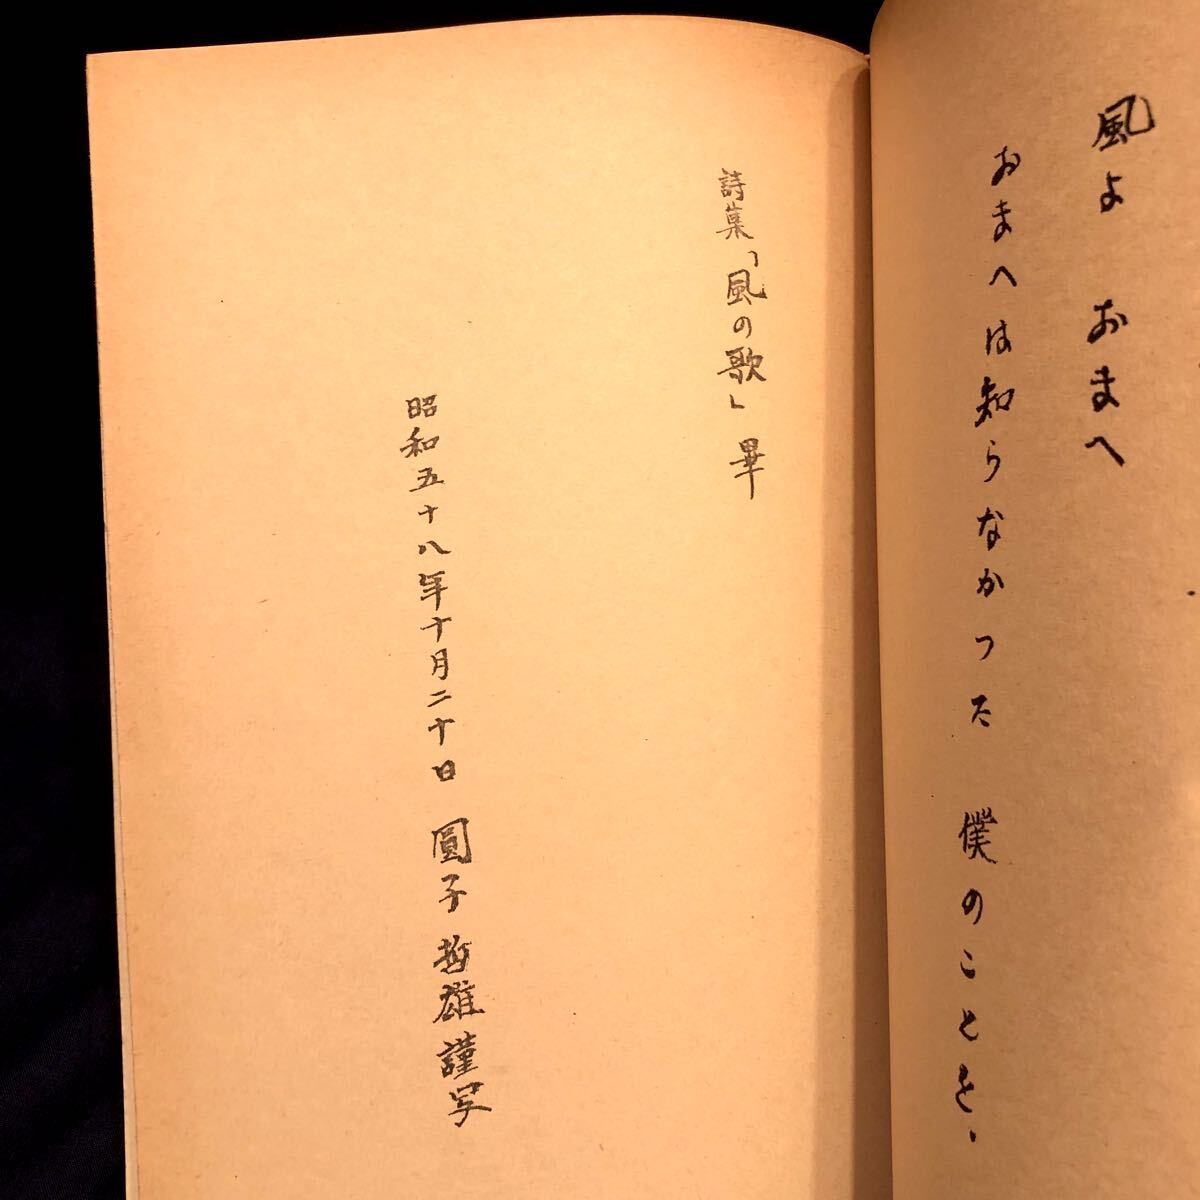 風よ おまへ
おまへは知らなかつた 僕のことを、
詩集「風の歌」畢
昭和五十八年十月二十日 圓子哲雄謹写